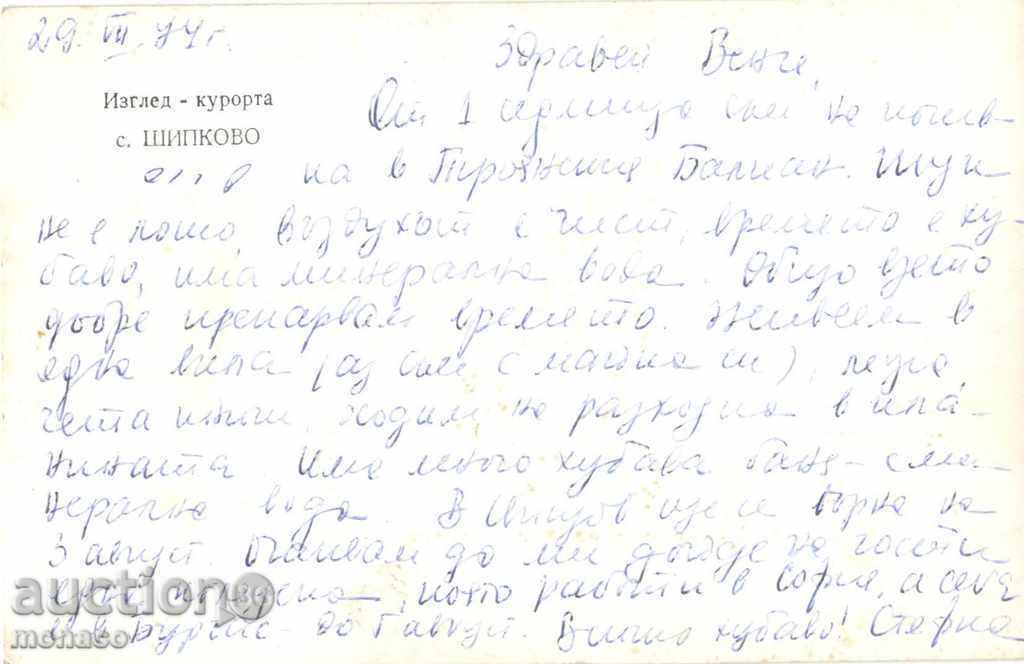 29. VII. 74 г.
Здравей Венче,
Изглед - курорта
с. ШИПКОВО
От 1 седмица съм на почив-
ка в Троянския Балкан. Тук
не е лошо, въздухът е чист, времето е ху-
баво, има минерална вода. Общо взето
добре прекарвам времето. Живеем в
една вила (аз съм с майка ми),
чета книги, ходим на разходка в пла-
нината. Има много хубава баня - с ми-
нерална вода. В ще се върна на
3 август. Очаквам да ми дойде на гости
една, която работи в София, а сега
е в Бургас - до 6 август. Всичко хубаво! Стефка
auction
monaco